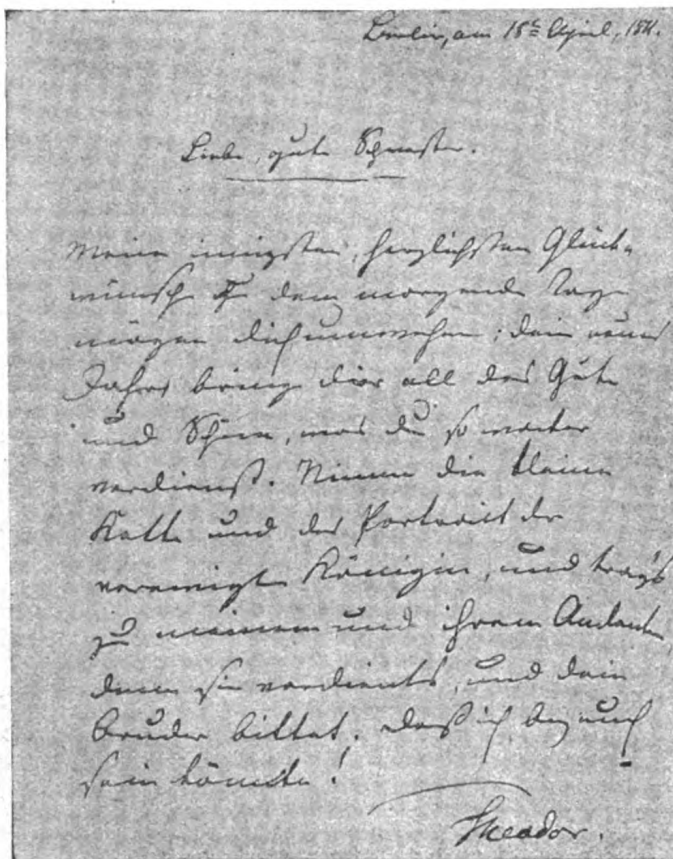 Berlin, am 18t April, 1811.
Liebe, gute Schwester.
Meine innigsten, herzlichsten Glück-
wünsche zu dem morgenden Tage
mögen dich umwehen; dein neues
Jahr bringe dir all das Gute
und Schöne, was du so
verdienst. Nimm die kleine
Kette und das Portrait der
Königin, und trag's
zu meinem und ihrem Andenken,
denn sie verdients, und dein
Bruder bittet. Daß ich bey euch
sein könnte!
Theodor.